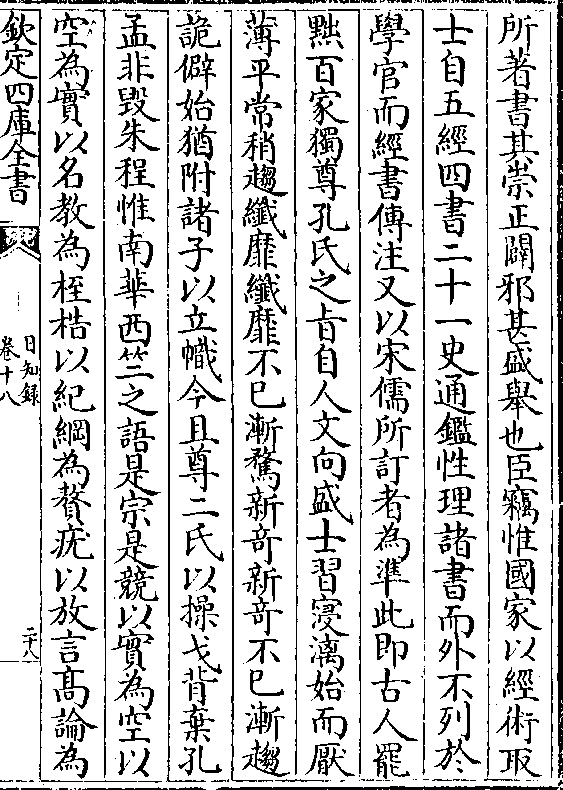 所著書其崇正闢邪甚盛舉也臣竊惟國家以經術取
士自五經四書二十一史通鑑性理諸書而外不列於
學官而經書傳注又以宋儒所訂者為準此即古人罷
黜百家獨尊孔氏之旨自人文向盛士習寖漓始而厭
薄平常稍趨纖靡纖靡不已漸騖新奇新奇不已漸趨
詭僻始猶附諸子以立幟今且尊二氏以操戈背棄孔
孟非毀朱程惟南華西竺之語是宗是競以實為空以
空為實以名教為桎梏以紀綱為贅疣以放言高論為
欽定四庫全書
日知錄
卷十八
二十八